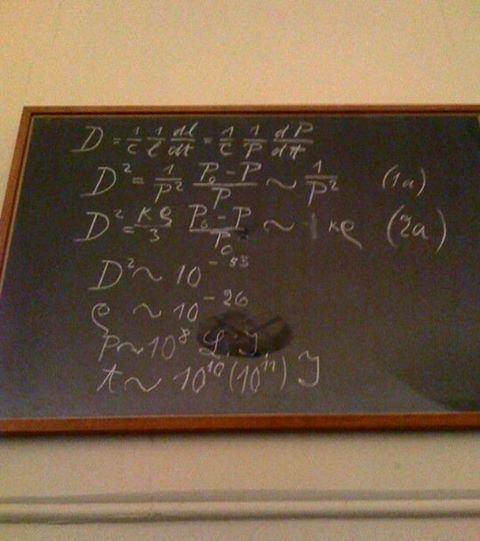 D = 1/c 1/l dl/dt = 1/c 1/P dP/dt
D² = 1/P² P₀-P/P ~ 1/P² (1a)
D² = κϱ/3 P₀-P/P₀ ~ 1/3 κϱ (2a)
D² ~ 10⁻⁵³
ϱ ~ 10⁻²⁶
P ~ 10⁸ L. J.
t ~ 10¹⁰ (10¹¹) J